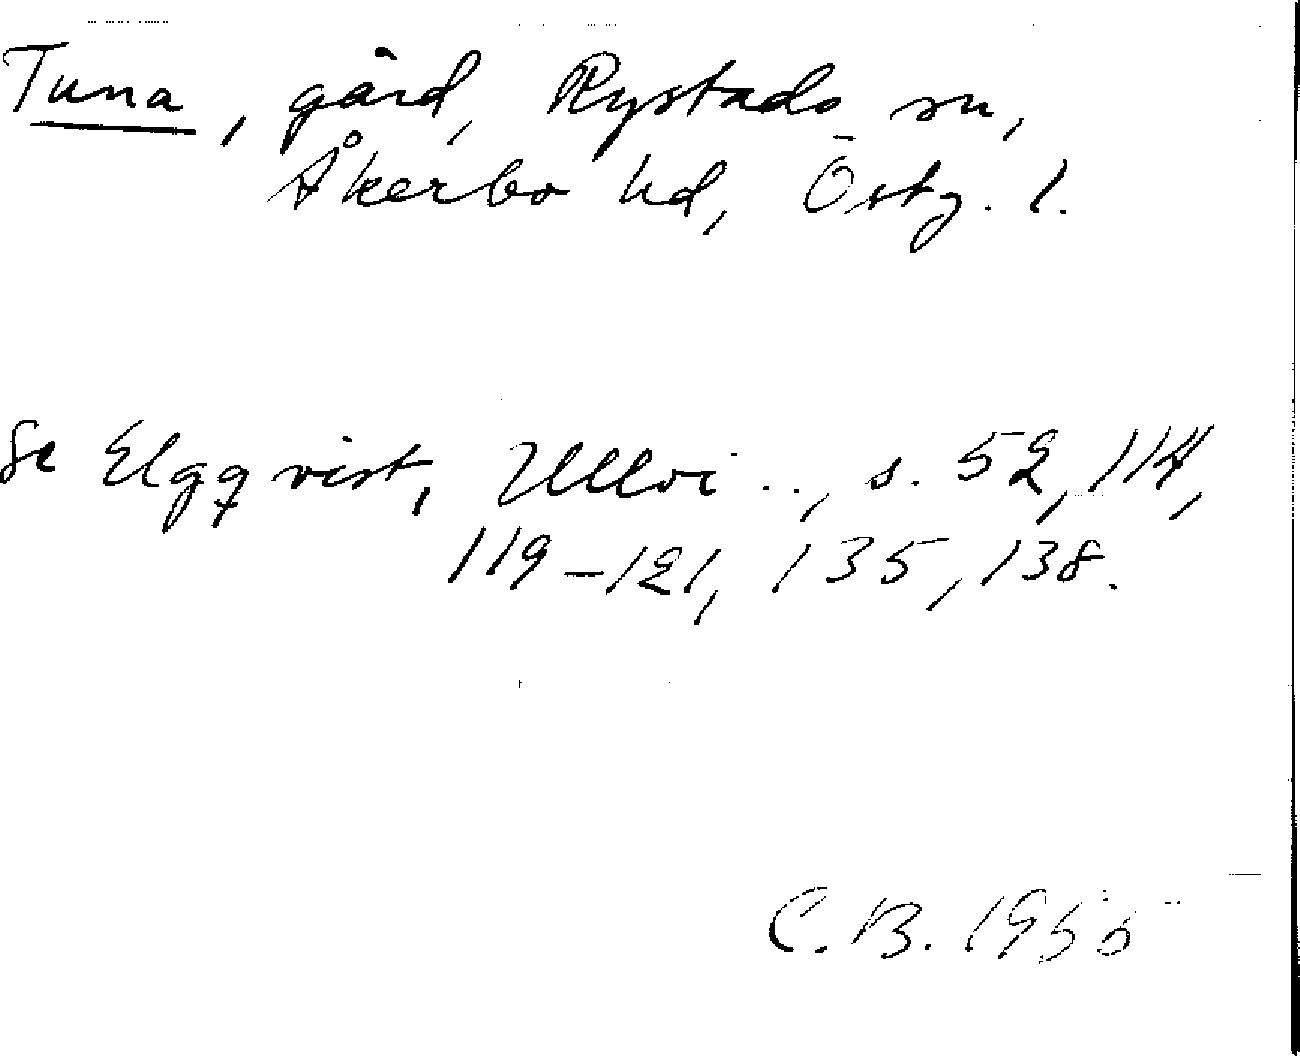 Tuna, gård, Rystads sn,
Åkerbo hd, Östg. l.
Se Elgqvist, Ullvi . . , s. 52, 114,
119–121, 135, 138.
C. B. 1955